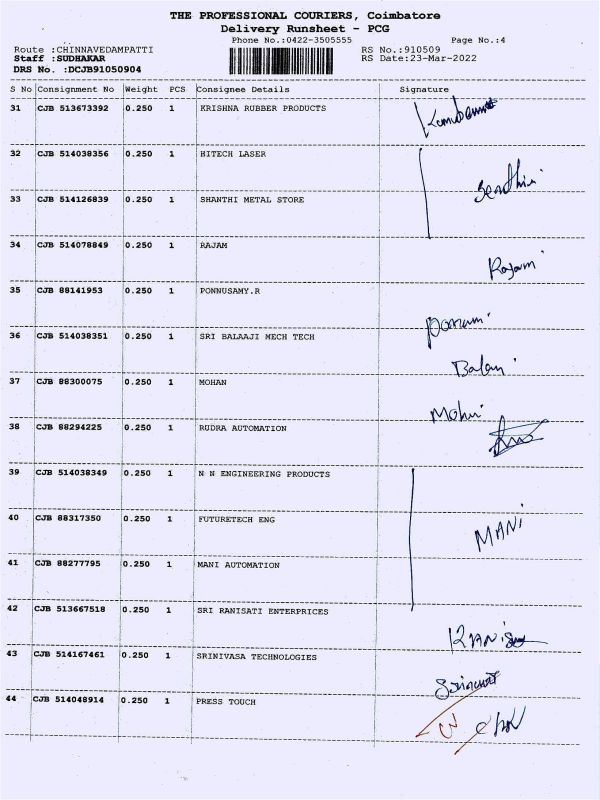 THE PROFESSIONAL COURIERS, Coimbatore
Delivery Runsheet - PCG
Phone No.:0422-3505555 Page No.:4
Route :CHINNAVEDAMPATTI RS No.:910509
Staff :SUDHAKAR RS Date:23-Mar-2022
DRS No. :DCJB91050904
S No Consignment No Weight PCS Consignee Details Signature
31 CJB 513673392 0.250 1 KRISHNA RUBBER PRODUCTS
32 CJB 514038356 0.250 1 HITECH LASER
33 CJB 514126839 0.250 1 SHANTHI METAL STORE
34 CJB 514078849 0.250 1 RAJAM
Rajam
35 CJB 88141953 0.250 1 PONNUSAMY.R
36 CJB 514038351 0.250 1 SRI BALAAJI MECH TECH
37 CJB 88300075 0.250 1 MOHAN
38 CJB 88294225 0.250 1 RUDRA AUTOMATION
39 CJB 514038349 0.250 1 N N ENGINEERING PRODUCTS
40 CJB 88317350 0.250 1 FUTURETECH ENG
MANI
41 CJB 88277795 0.250 1 MANI AUTOMATION
42 CJB 513667518 0.250 1 SRI RANISATI ENTERPRICES
43 CJB 514167461 0.250 1 SRINIVASA TECHNOLOGIES
44 CJB 514048914 0.250 1 PRESS TOUCH